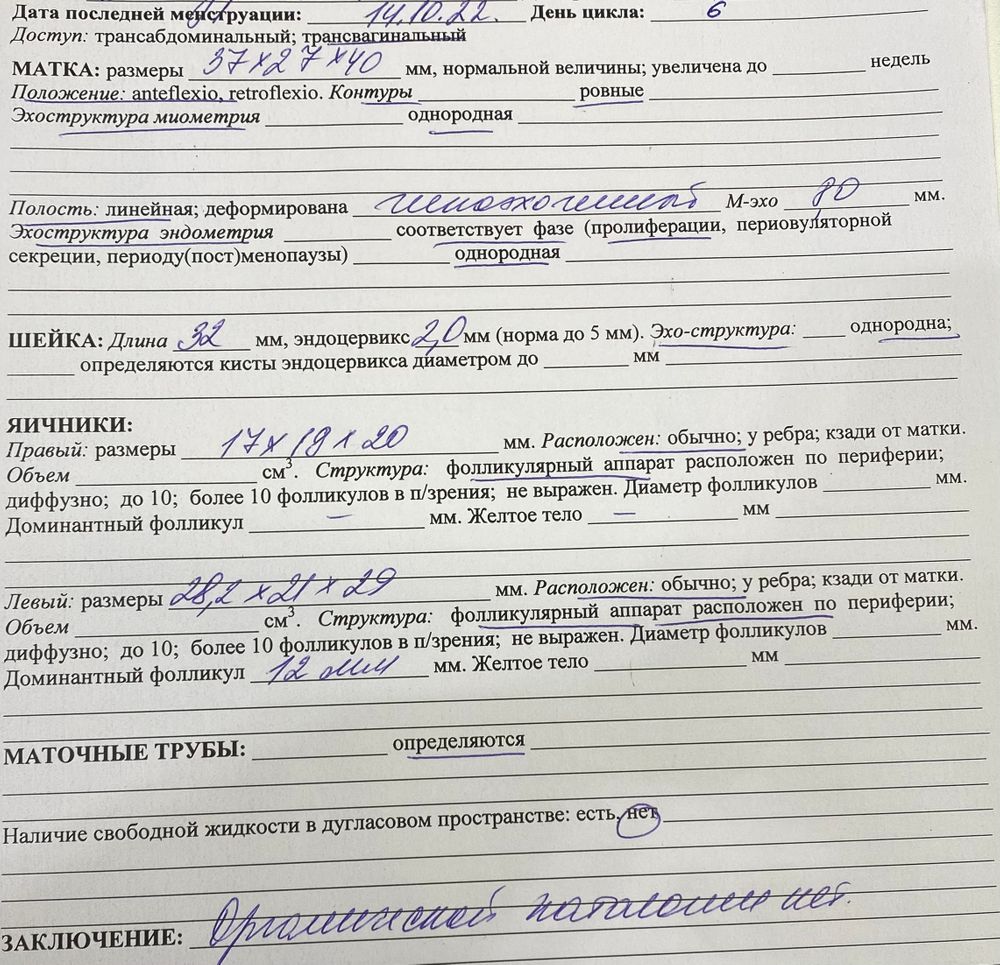 Дата последней менструации: 14.10.22. День цикла: 6
Доступ: трансабдоминальный; трансвагинальный
МАТКА: размеры 37×27×40 мм, нормальной величины; увеличена до ______ недель
Положение: anteflexio, retroflexio. Контуры ______ ровные ______
Эхоструктура миометрия ______ однородная ______
Полость: линейная; деформирована гипоэхогенный М-эхо 80 мм.
Эхоструктура эндометрия ______ соответствует фазе (пролиферации, периовуляторной
секреции, периоду(пост)менопаузы) ______ однородная ______
ШЕЙКА: Длина 32 мм, эндоцервикс 2,0 мм (норма до 5 мм). Эхо-структура: ____ однородна;
______ определяются кисты эндоцервикса диаметром до ______ мм
ЯИЧНИКИ:
Правый: размеры 17×19×20 мм. Расположен: обычно; у ребра; кзади от матки.
Объем ______ см³. Структура: фолликулярный аппарат расположен по периферии;
диффузно; до 10; более 10 фолликулов в п/зрения; не выражен. Диаметр фолликулов ______ мм.
Доминантный фолликул — мм. Желтое тело — мм
Левый: размеры 28,2×21×29 мм. Расположен: обычно; у ребра; кзади от матки.
Объем ______ см³. Структура: фолликулярный аппарат расположен по периферии;
диффузно; до 10; более 10 фолликулов в п/зрения; не выражен. Диаметр фолликулов ______ мм.
Доминантный фолликул 12 мм мм. Желтое тело ______ мм
МАТОЧНЫЕ ТРУБЫ: ______ определяются ______
Наличие свободной жидкости в дугласовом пространстве: есть, нет
ЗАКЛЮЧЕНИЕ: Органической патологии нет.